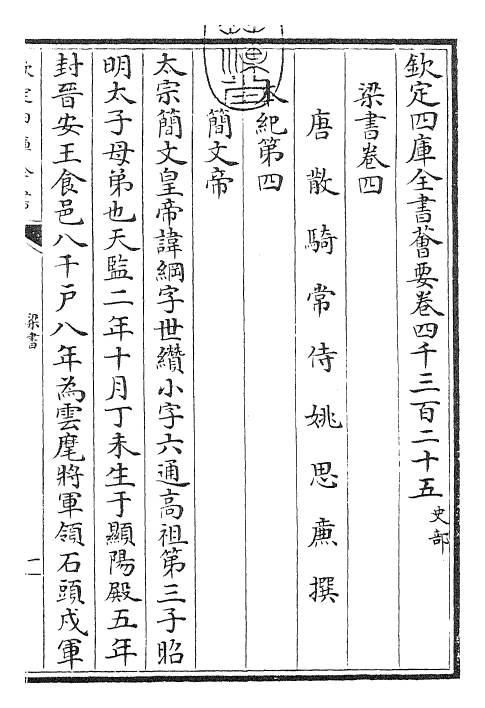 欽定四庫全書薈要卷四千三百二十五 史部
梁書卷四
唐散騎常侍姚思廉撰
本紀第四
簡文帝
太宗簡文皇帝諱綱字世纘小字六通高祖第三子昭
明太子母弟也天監二年十月丁未生于顯陽殿五年
封晉安王食邑八千戶八年為雲麾將軍領石頭戍軍
欽定四庫全書
梁書
一